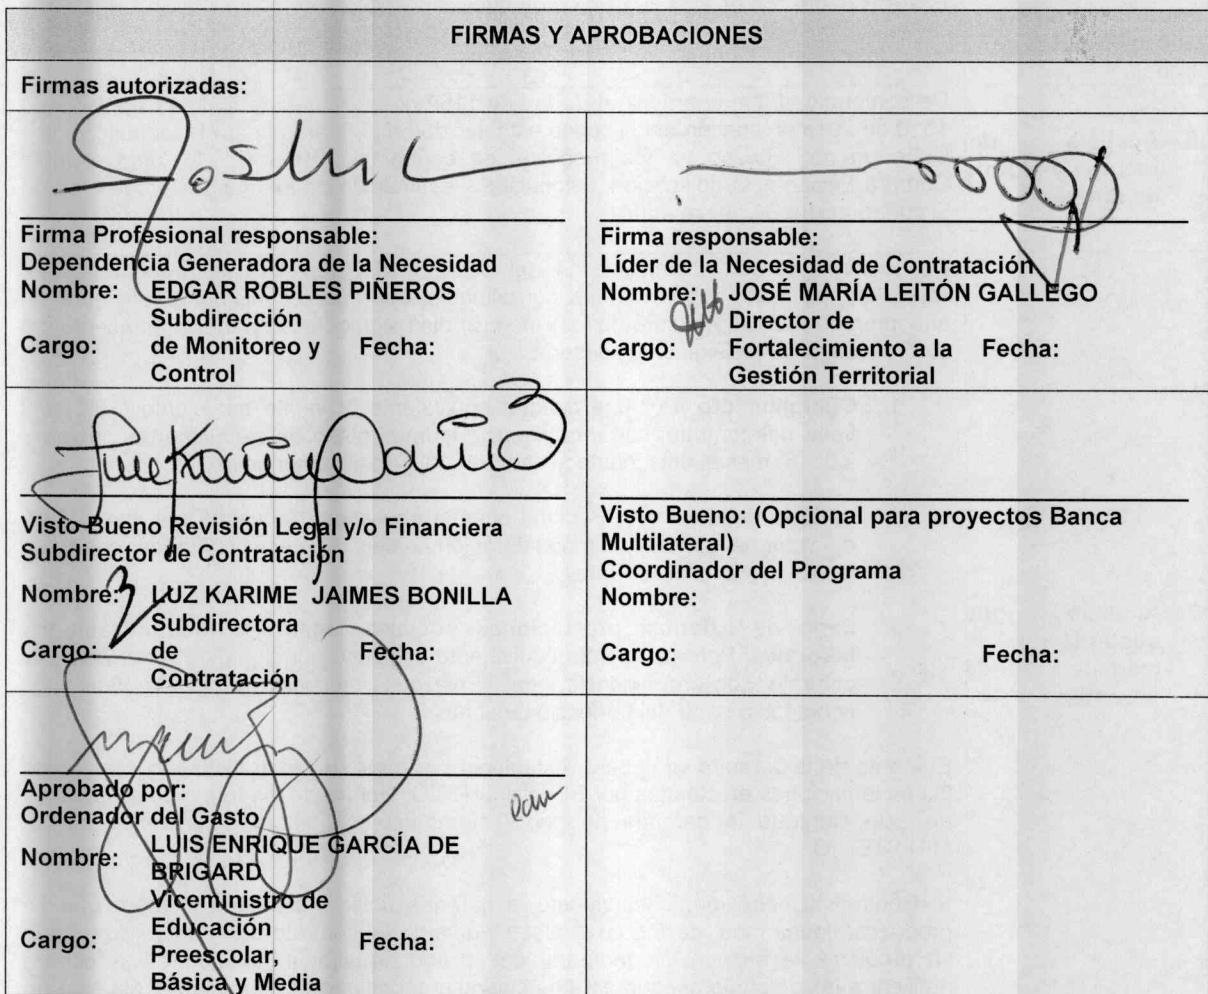 FIRMAS Y APROBACIONES
Firmas autorizadas:
Firma Profesional responsable:
Dependencia Generadora de la Necesidad
Nombre: EDGAR ROBLES PIÑEROS
Cargo: Subdirección
de Monitoreo y
Control
Fecha:
Firma responsable:
Líder de la Necesidad de Contratación
Nombre: JOSÉ MARÍA LEITÓN GALLEGO
Cargo: Director de
Fortalecimiento a la
Gestión Territorial
Fecha:
Visto Bueno Revisión Legal y/o Financiera
Subdirector de Contratación
Nombre: LUZ KARIME JAIMES BONILLA
Cargo: Subdirectora
de
Contratación
Fecha:
Visto Bueno: (Opcional para proyectos Banca
Multilateral)
Coordinador del Programa
Nombre:
Cargo:
Fecha:
Aprobado por:
Ordenador del Gasto
Nombre: LUIS ENRIQUE GARCÍA DE
BRIGARD
Cargo: Viceministro de
Educación
Preescolar,
Básica y Media
Fecha: